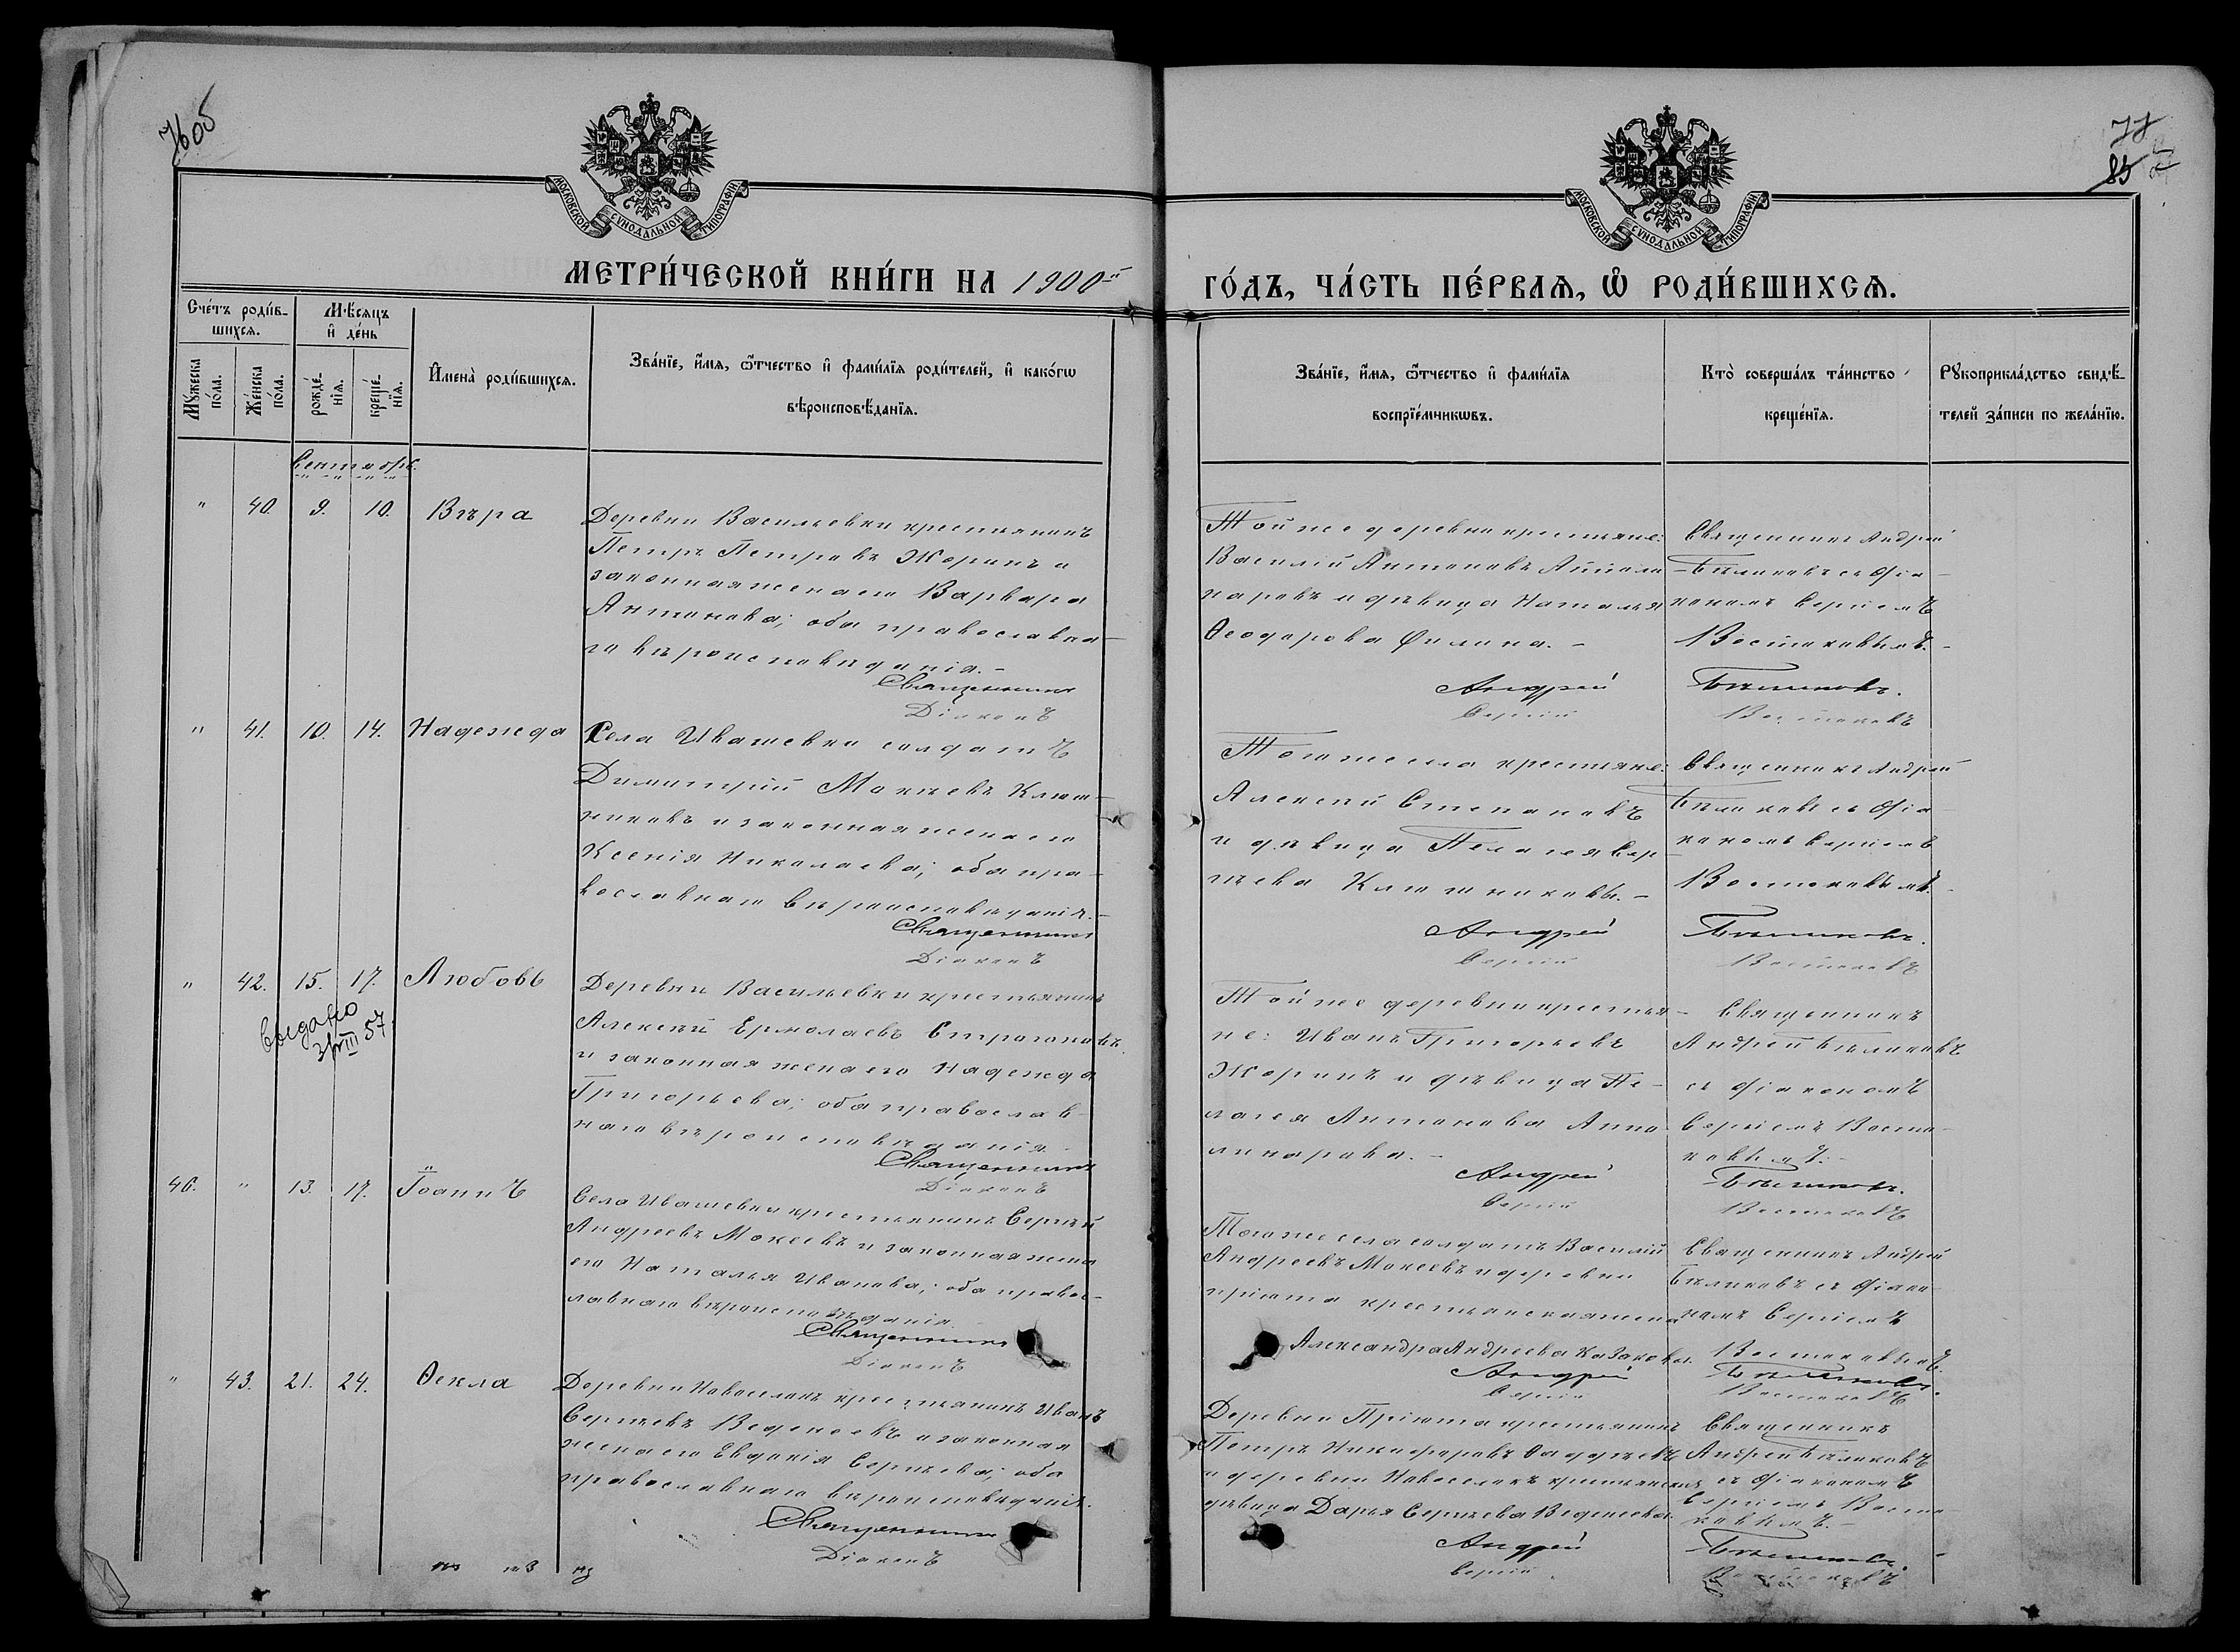 7605
77
85
МОСКОВСКОЙ СѴНОДАЛЬНОЙ ТИПОГРАФІИ
МОСКОВСКОЙ СѴНОДАЛЬНОЙ ТИПОГРАФІИ
МЕТРИ́ЧЕСКОЙ КНИ́ГИ НА 1900й
ГО́ДЪ, ЧА́СТЬ ПЕ́РВАѦ, Ѡ҆ РОДИ́ВШИХСѦ.
Сче́тъ роди́в-
шихсѧ.
Мѣ́сѧцъ
и҆ де́нь
Мꙋ́жеска
по́ла.
Же́нска
по́ла.
рожде́-
нїѧ.
креще́-
нїѧ.
И҆мена̀ роди́вшихсѧ.
Зва́нїе, и҆́мѧ, ѻ҆́тчество и҆ фами́лїѧ роди́телей, и҆ како́гѡ
вѣроисповѣ́данїѧ.
Зва́нїе, и҆́мѧ, ѻ҆́тчество и҆ фами́лїѧ
воспрїе́мникѡвъ.
Кто̀ соверша́лъ та́инство
креще́нїѧ.
Рꙋкоприкла́дство свидѣ́-
телей за́писи по жела́нїю.
Сентябрь.
" 40. 9. 10. Вѣра
Деревни Васильевки крестьянинъ
Петръ Петровъ Жоринъ и
законная жена его Варвара
Антонова; оба православна-
го вѣроисповѣданія.-
Священникъ
Діаконъ
Той же деревни крестьяне:
Василій Антоновъ Аппали
наровъ и дѣвица Наталья
Ѳеодорова Филина.-
Андрей
Сергій
Священникъ Андрей
Бѣликовъ съ діа-
кономъ Сергіемъ
Востоковымъ.-
Бѣликовъ.
Востоковъ
" 41. 10. 14. Надежда
Села Ивашевки солдатъ
Димитрій Мокѣевъ Ключ-
никовъ и законная жена его
Ксенія Николаева; оба пра-
вославнаго вѣроисповѣданія.-
Священникъ
Діаконъ
Того же села крестьяне:
Алексій Степановъ
и дѣвица Пелагея Сер-
гѣева Ключниковы.-
Андрей
Сергій
Священникъ Андрей
Бѣликовъ съ діа-
кономъ Сергіемъ
Востоковымъ.-
Бѣликовъ.
Востоковъ
" 42. 15. 17. Любовь
выдано
31/III 57.
Деревни Васильевки крестьянинъ
Алексѣй Ермолаевъ Строгановъ
и законная жена его Надежда
Григорьева; оба православ-
наго вѣроисповѣданія.-
Священникъ
Діаконъ
Той же деревни крестья-
не: Иванъ Григорьевъ
Жоринъ и дѣвица Пе-
лагея Антонова Аппо-
линарова.-
Андрей
Сергій
Священникъ
Андрей Бѣликовъ
съ діакономъ
Сергіемъ Восто-
ковымъ.-
Бѣликовъ.
Востоковъ
46. " 13. 17. Іоаннъ
Села Ивашевки крестьянинъ Сергѣй
Андреевъ Мокеевъ и законная жена
его Наталья Иванова; оба правос-
лавнаго вѣроисповѣданія.
Священникъ
Діаконъ
Того же села солдатъ Василій
Андреевъ Мокеевъ и деревни
Пріюта крестьянская жена
Александра Андреева Казакова.
Андрей
Сергій
Священникъ Андрей
Бѣликовъ съ діако-
номъ Сергіемъ
Востоковымъ.
Бѣликовъ.
Востоковъ
" 43. 21. 24. Ѳекла
Деревни Новоселокъ крестьянинъ Иванъ
Сергѣевъ Веденеевъ и законная
жена его Евдокія Сергѣева; оба
православнаго вѣроисповѣданія.
Священникъ
Діаконъ
Деревни Пріюта крестьянинъ
Петръ Никифоровъ Ѳаддѣевъ
и деревни Новоселокъ крестьянская
дѣвица Дарья Сергѣева Веденеева.
Андрей
Сергій
Священникъ
Андрей Бѣликовъ
съ діакономъ
Сергіемъ Восто
ковымъ.-
Бѣликовъ.
Востоковъ